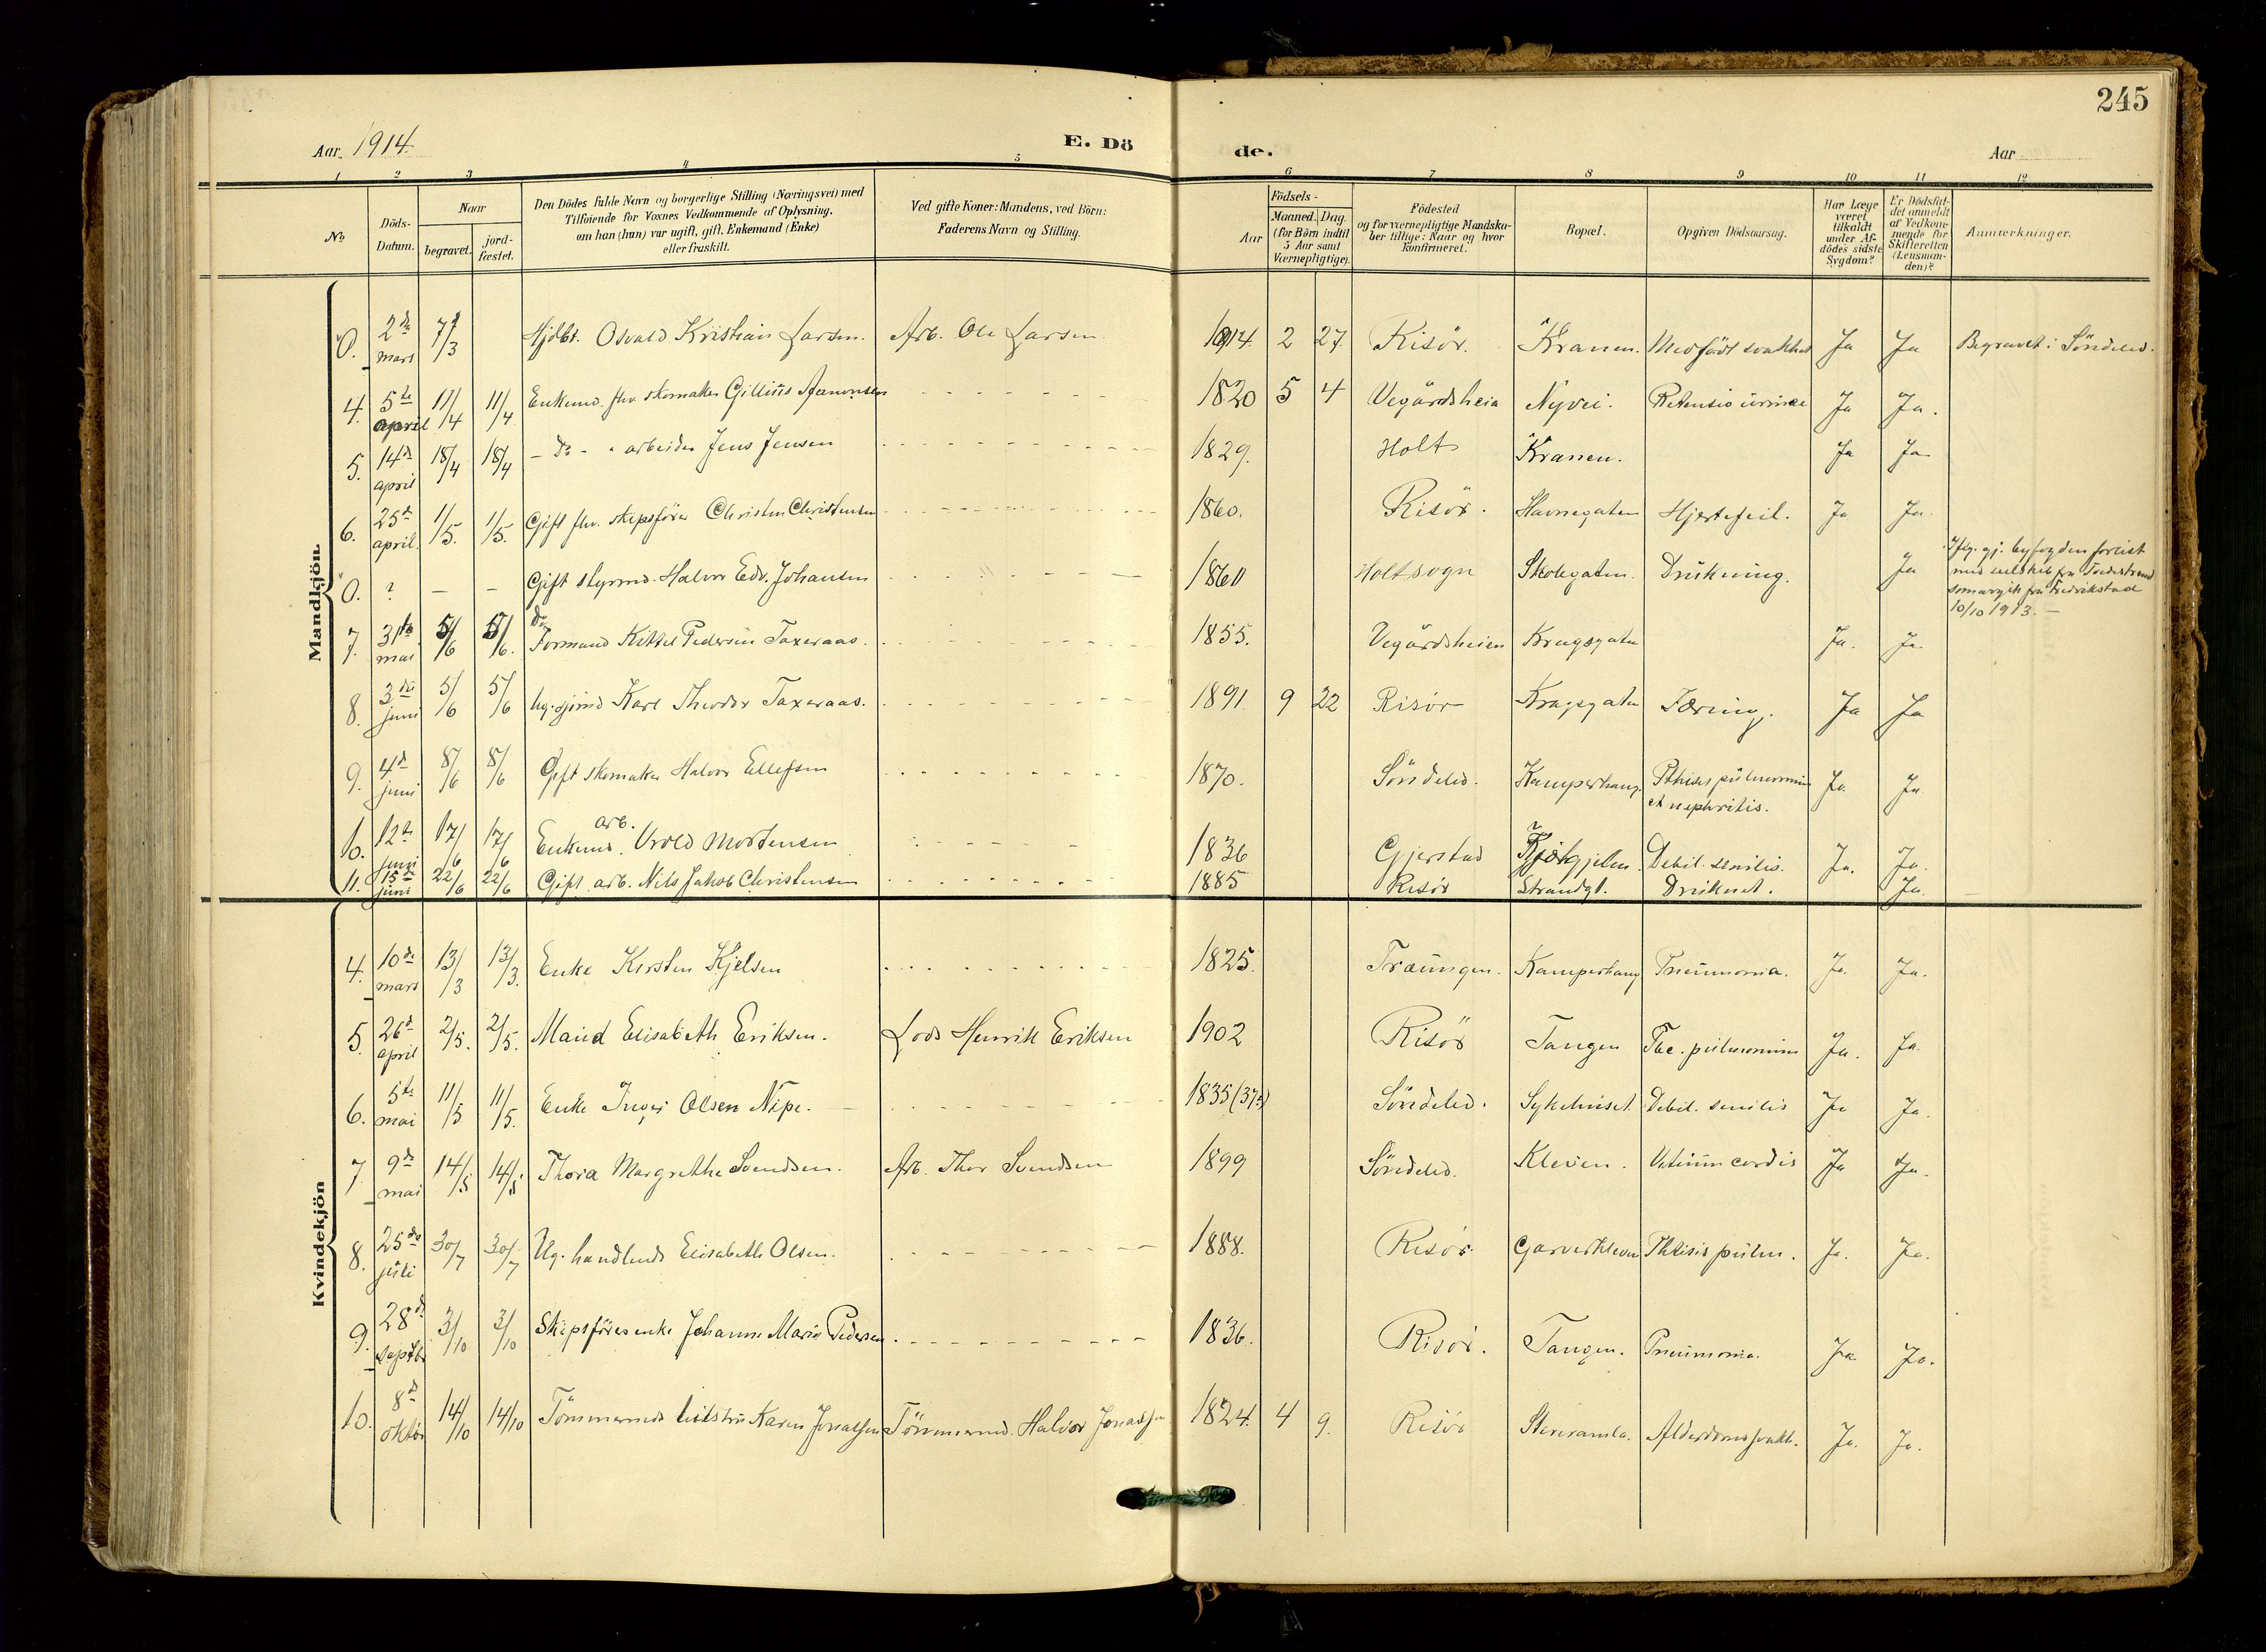 245
Aar. 1914.
E. Dö
de.
Aar
1 2 3 4 5 6 7 8 9 10 11 12
No.
Döds-
Datum.
Naar
begravet.
jord-
fæstet.
Den Dödes fulde Navn og borgerlige Stilling (Næringsvei) med
Tilföiende for Voxnes Vedkommende af Oplysning,
om han (hun) var ugift, gift, Enkemand (Enke)
eller fraskilt.
Ved gifte Koner: Mandens, ved Börn:
Faderens Navn og Stilling.
Födsels-
Aar
Maaned. Dag.
(for Börn indtil
5 Aar samt
Værnepligtige).
Födested
og for værnepligtige Mandska-
ber tillige: Naar og hvor
konfirmeret.
Bopæl.
Opgiven Dödsaarsag.
Har Læge
været
tilkaldt
under Af-
dödes sidste
Sygdom?
Er Dödsfal-
det anmeldt
af Vedkom-
mende for
Skifteretten
(Lensman-
den)?
Anmærkninger.
Mandkjön.
0. 2de mars 7/3 Hjdbt. Osvald Kristian Larsen. Arb. Ole Larsen 1914. 2 27 Risör. Kranen. Medfödt svakhet Ja Ja Begravet i Söndeled.
4. 5te april 11/4 11/4 Enkemd. fhv. skomaker Gillius Aamonsen 1820 5 4 Vegårdsheia Nyvei. Retensio urinae Ja Ja.
5. 14d april 18/4 18/4 - Do - " arbeider Jens Jensen 1829. Holt Kranen. Ja Ja
6. 25d april. 1/5. 1/5. Gift fhv. skipsförer Christen Christensen 1860. Risör. Havnegaten Hjertefeil. Ja Ja
0. ? - - Gift styrmd. Halvor Edv. Johansen 1860 Holt sogn Skolegaten. Drukning. Ja Iflg. gj. byfogden forlist
med seilskib fra Tvedestrand
som avgik fra Fredrikstad
10/10 1913. -
7. 31te mai 5/6 5/6. Do Formand Kittel Pedersen Taxeraas. 1855. Vegårdsheien Kragsgaten Ja. Ja
8. 3die juni 5/6 5/6 Ug. sjömd Karl Theodor Taxeraas. 1891. 9 22 Risör Kragsgaten Tæring. Ja Ja
9. 4d juni 8/6 8/6 Gift skomaker Halvor Ellefsen 1870. Söndeled. Kamperhaug. Pthisis pulmonum
et nephritis. Ja Ja
10. 12te juni 17/6 17/6 Enkemd. arb. Vrold Mortensen 1836 Gjerstad Debil. senilis. Ja. Ja
11. 15de juni 22/6 22/6 Gift arb. Nils Jakob Christensen 1885 Risör Strandgt. Druknet. Ja.
Kvindekjön
4. 10de mars 13/3 13/3. Enke Kirsten Kjelsen 1825. Kamperhaug Pneumonia. Ja Ja.
5. 26d april 2/5. 2/5. Maud Elisabeth Eriksen. Lods Henrik Eriksen 1902 Risör Tangen Tbc. pulmonum Ja. Ja.
6. 5te mai 11/5 11/5. Enke Inger Olsen Nipe. 1835 (37?) Söndeled. Sykehuset. Debil. senilis Ja Ja.
7. 9de mai 14/5 14/5 Thora Margrethe Svendsen. Arb. Thor Svendsen 1899 Söndeled. Kleven. Vitium cordis Ja Ja.
8. 25de juli 30/7 30/7 Ug. handlende Elisabeth Olsen. 1888. Risör. Garverkleven Phtisis pulm. Ja. Ja.
9. 28d septbr 3/10 3/10 Skipsförerenke Johanne Marie Pedersen 1836. Risör. Tangen. Pneumonia. Ja Ja.
10. 8d oktbr 14/10 14/10 Tömmermds hustru Karen Jonassen Tömmermd. Halvor Jonassen 1824. 4 9. Risör Alderdomssvakh. Ja. Ja.